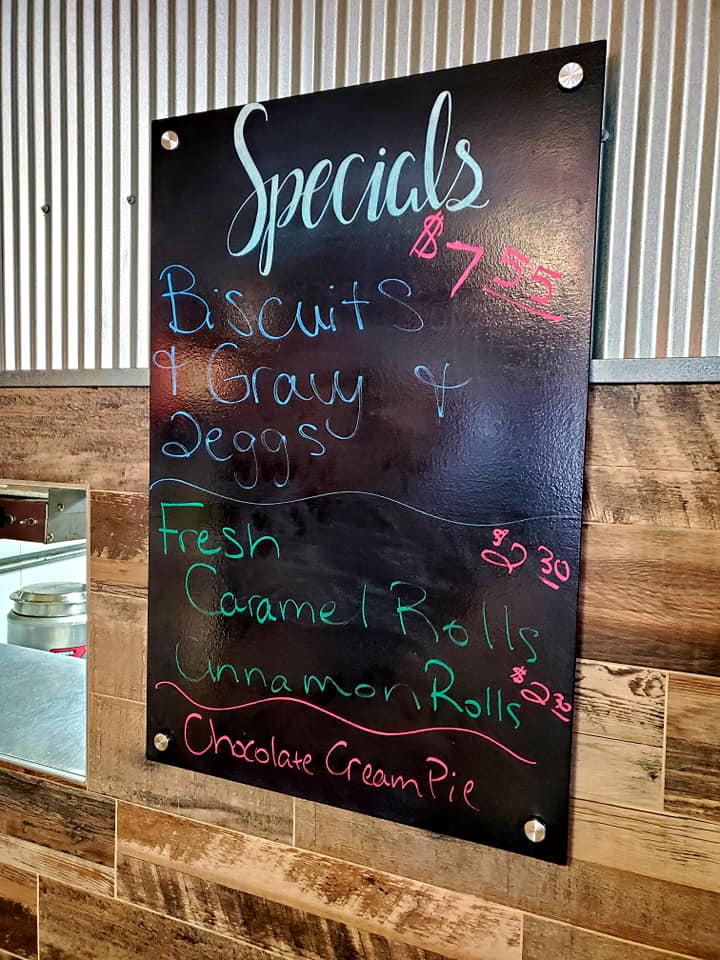 Specials
$7 55
Biscuits
& Gravy &
2eggs
Fresh $2 30
Caramel Rolls
Cinnamon Rolls $2 30
Chocolate Cream Pie